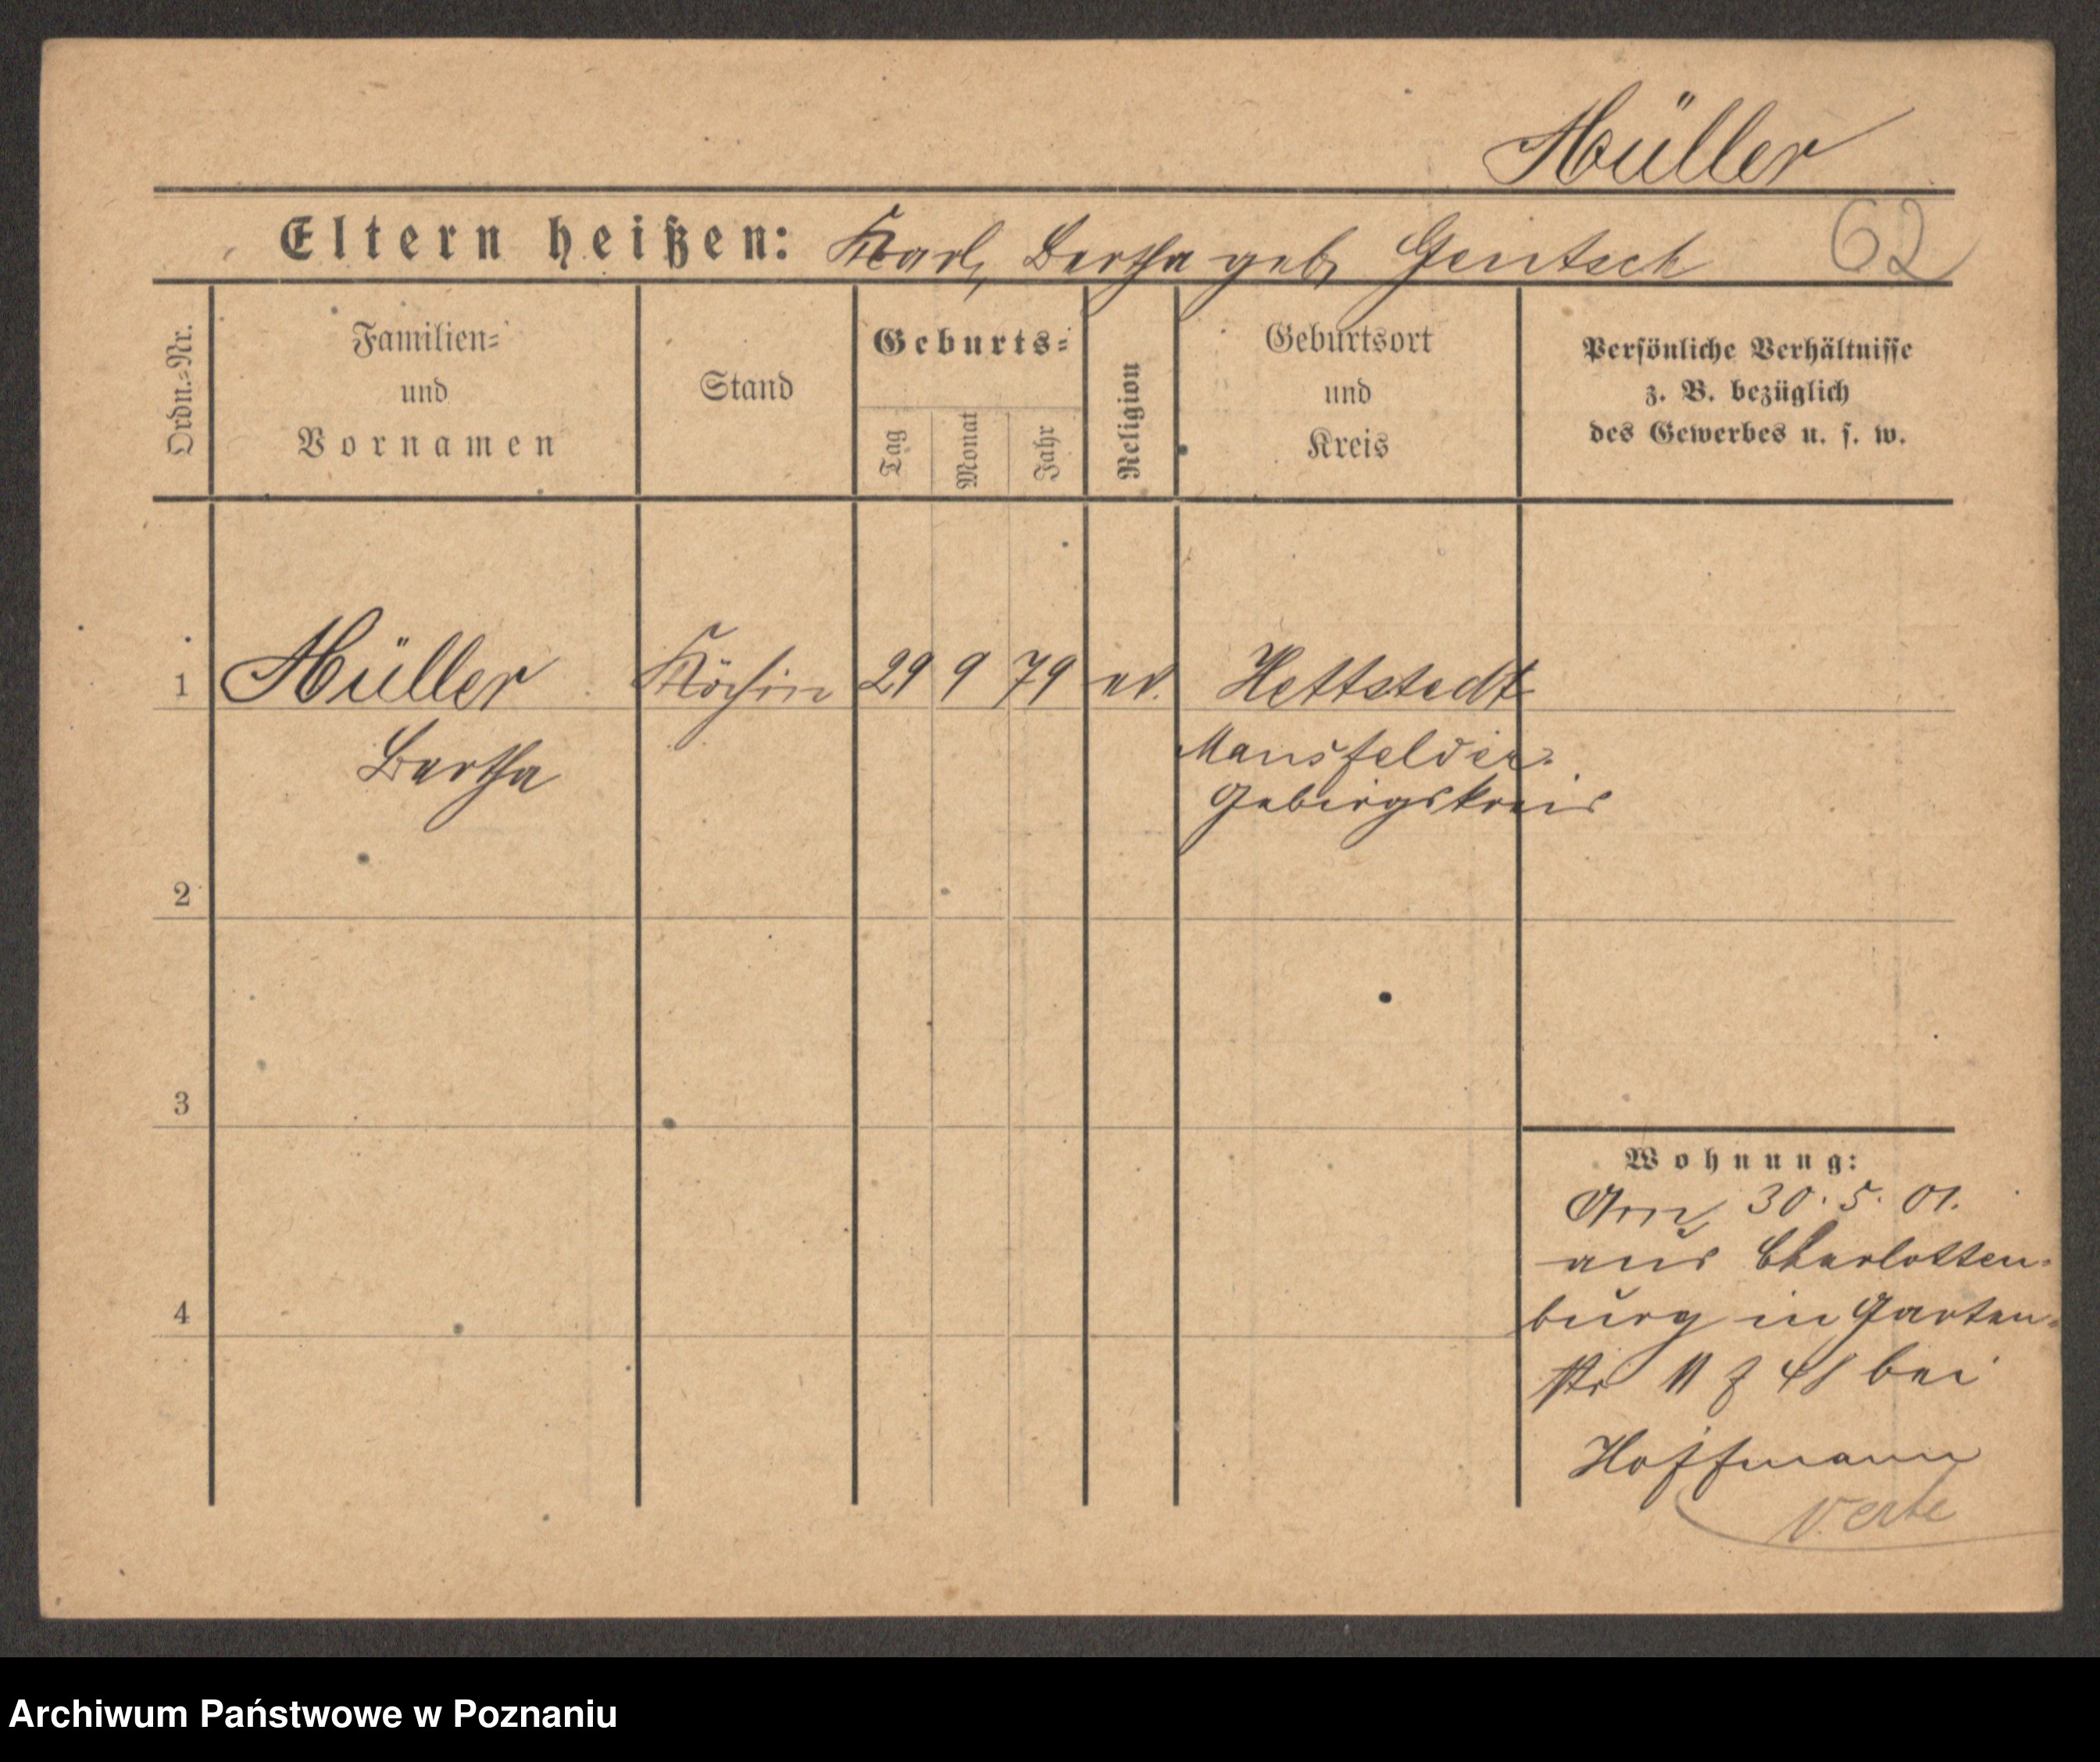 Müller
Eltern heißen: Karl, Bertha geb. Gentsch 62
Ordn.=Nr.
Familien=
und
Vornamen
Stand
Geburts=
Tag
Monat
Jahr
Religion
Geburtsort
und
Kreis
Persönliche Verhältnisse
z. B. bezüglich
des Gewerbes u. s. w.
1 Müller Köchin 29 9 79 ev. Hettstedt
Bertha
Mansfelder-
Gebirgskreis
2
3
4
Wohnung:
30. 5. 01.
aus Charlotten-
burg in Garten-
str 11 bei
Hoffmann
verte
Archiwum Państwowe w Poznaniu